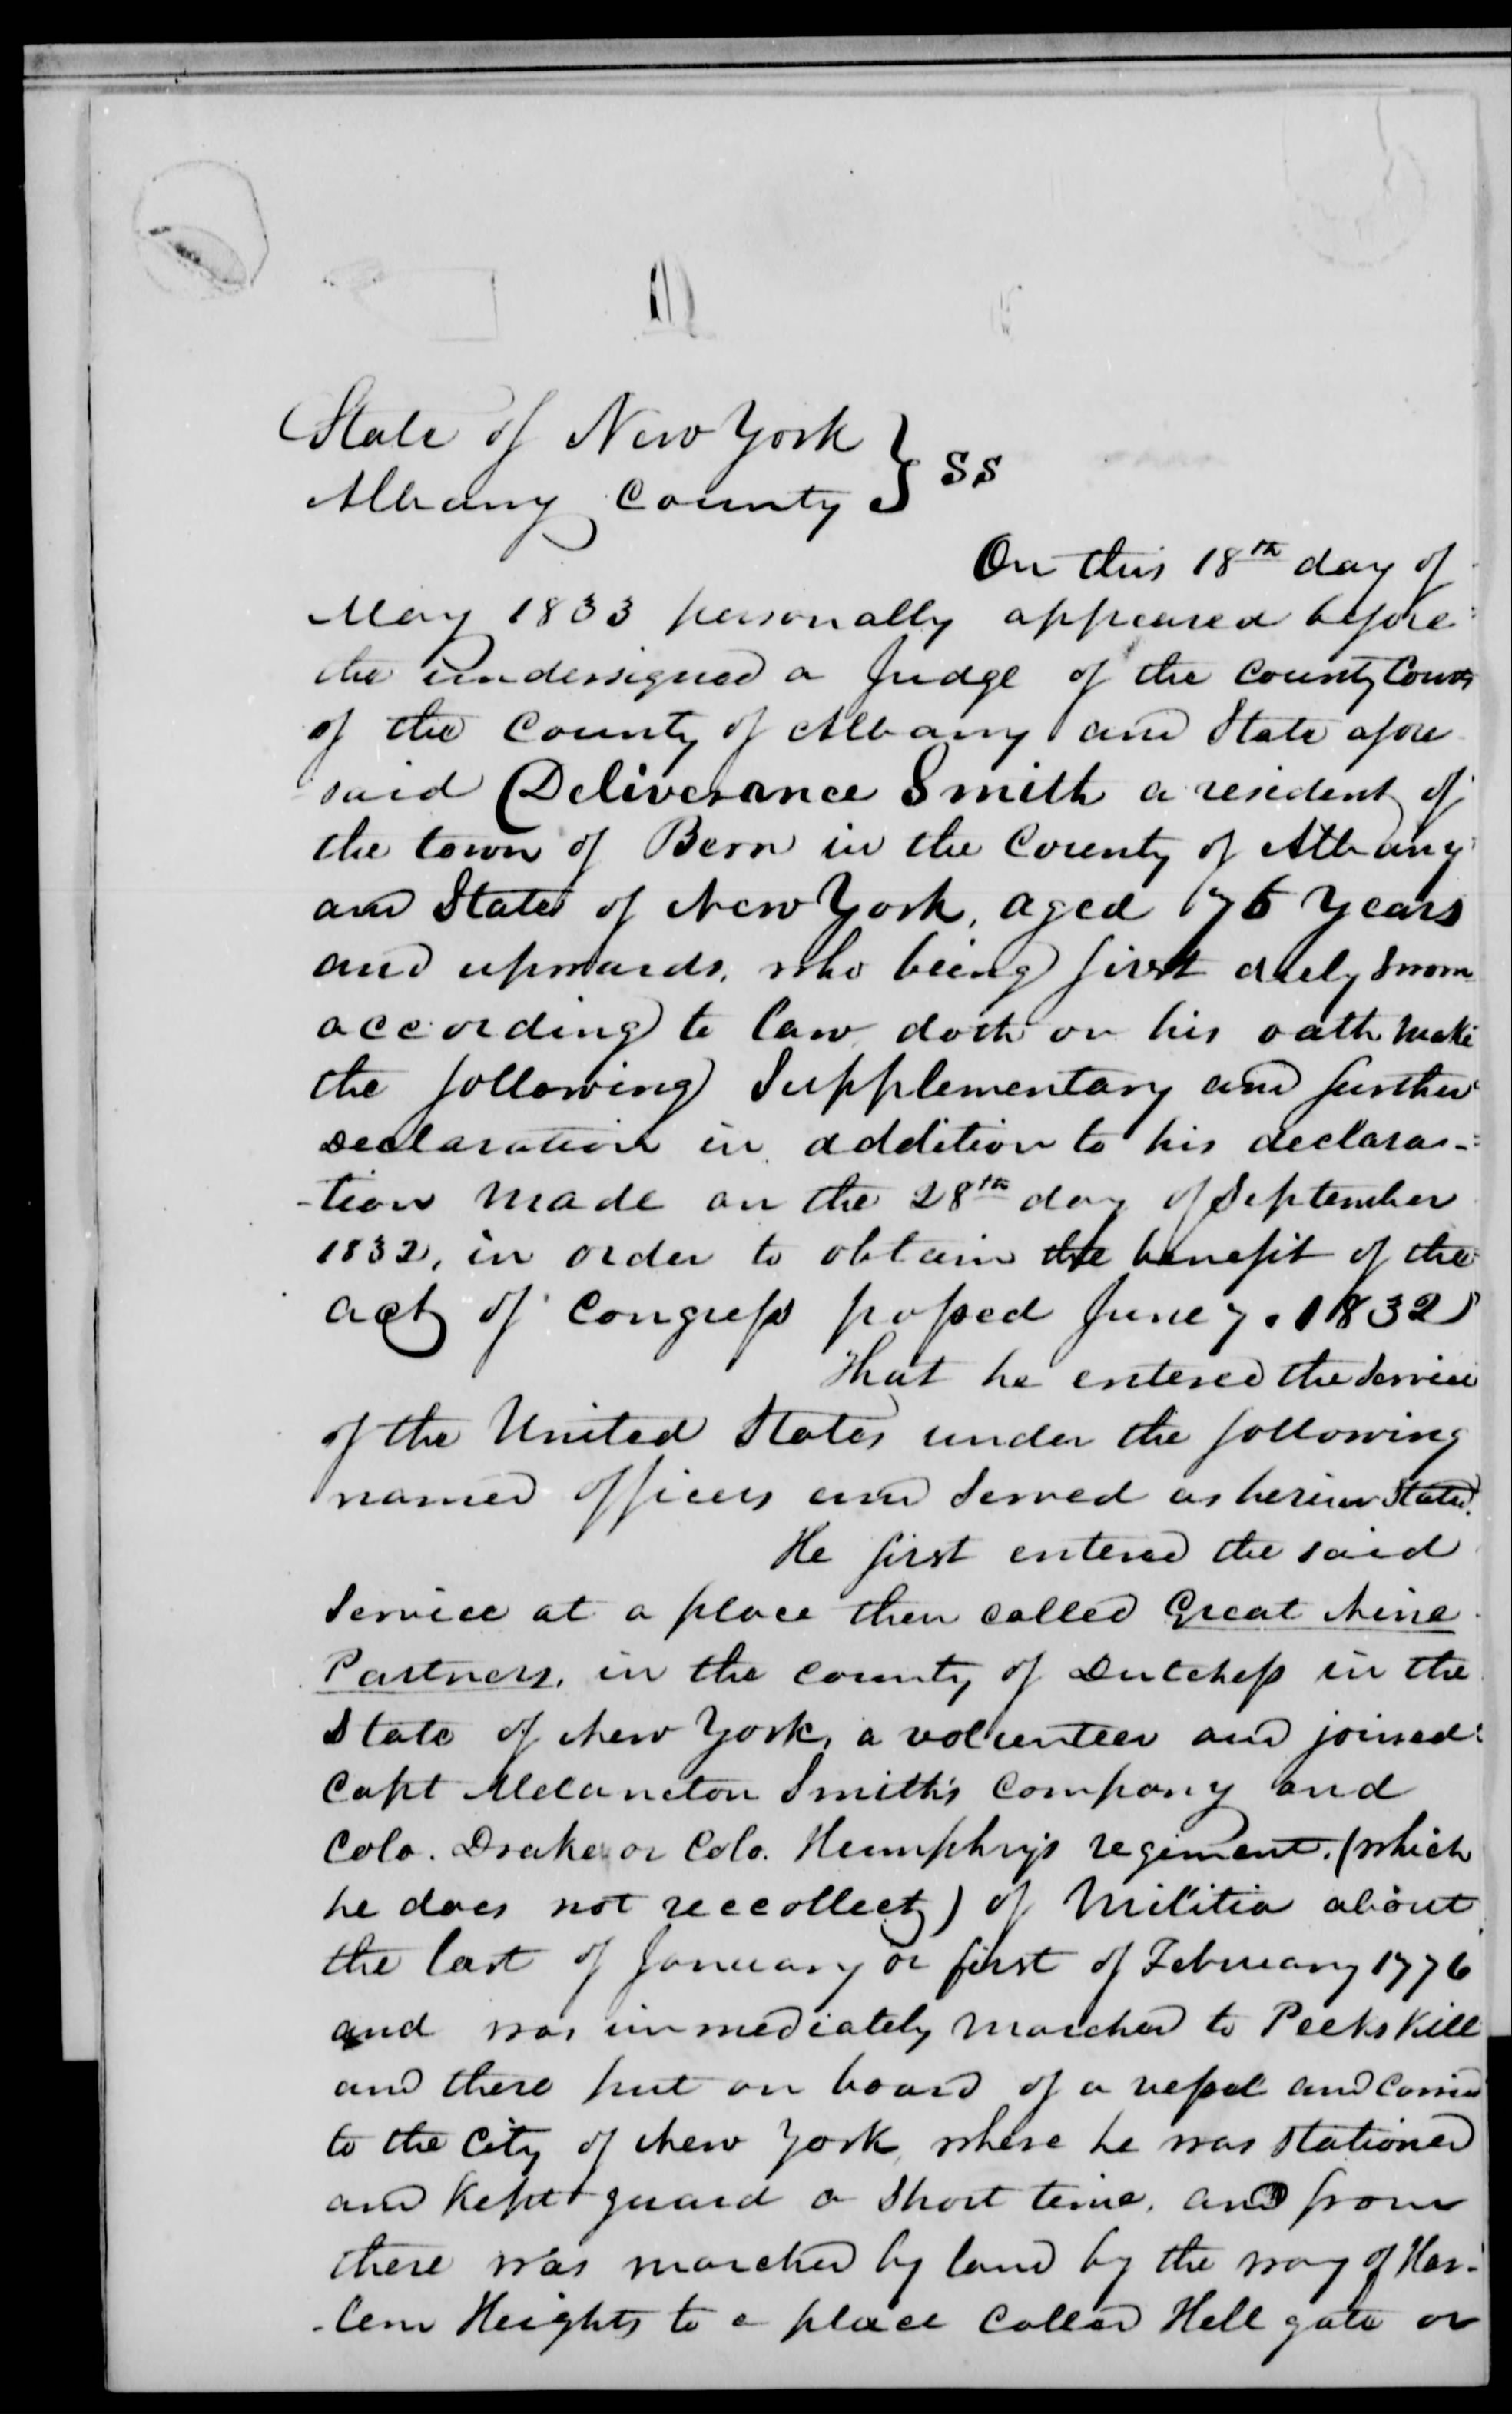 State of New York } SS
Albany County
On this 18th day of
May 1833 personally appeared before
the undersigned a Judge of the County Courts
of the County of Albany and State afore
said Deliverance Smith a resident of
the town of Bern in the County of Albany
and State of New York, aged 76 years
and upwards, who being first duly sworn
according to law doth on his oath make
the following Supplementary and further
declaration in addition to his declara-
-tion made on the 28th day of September
1832, in order to obtain the benefit of the
act of Congress passed June 7. 1832
That he entered the Service
of the United States under the following
named officers and Served as herein Stated.
He first entered the said
Service at a place then called Great Nine
Partners, in the county of Dutchess in the
State of New York, a volunteer and joined
Capt Melancton Smith's Company and
Colo. Drake or Colo. Humphry's regiment, (which
he does not reccollect) of Militia about
the last of January or first of February 1776
and was immediately marched to Peekskill
and there put on board of a vessel and carried
to the City of New York, where he was stationed
and kept guard a Short time, and from
there was marched by land by the way of Har-
-lem Heights to a place called Hell gate or